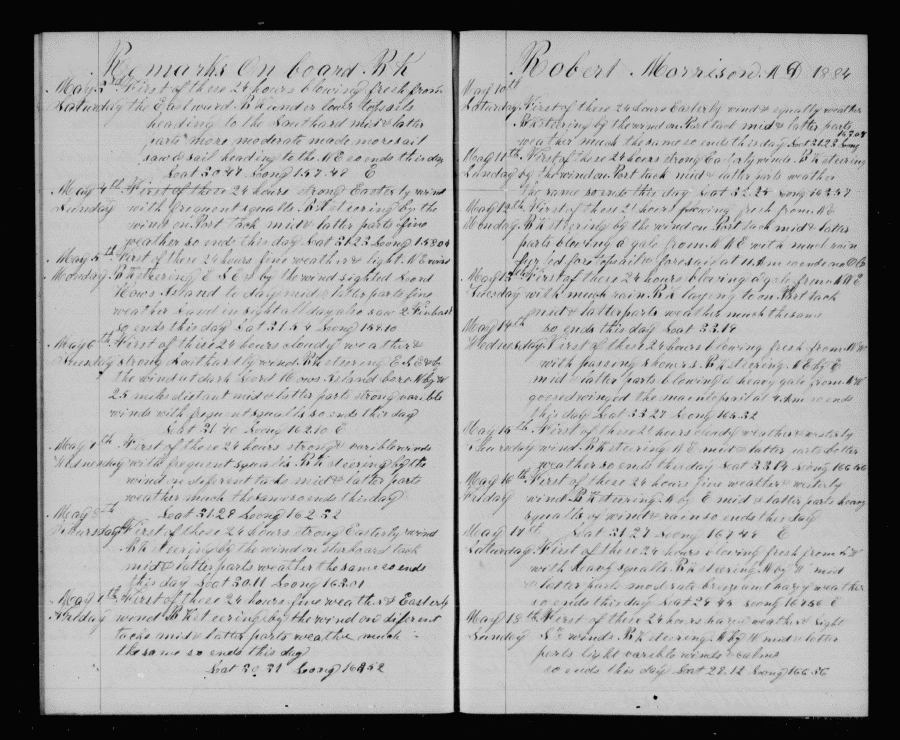 Remarks On board Bk
May 3rd First of these 24 hours blowing fresh from
Saturday the Eastward Bk under lower topsails
heading to the Southard mid & latter
parts more moderate made more sail
saw a sail heading to the NE so ends this day
Lat 30.47 Long 157.48 E
May 4th First of these 24 hours strong Easterly wind
Sunday with frequent squalls Bk steering by the
wind on Port tack mid & latter parts fine
weather so ends this day Lat 31.23 Long 158.04
May 5th First of these 24 hours fine weather & light NE wind
Monday Bk steering E S E & by the wind sighted Lord
Hows Island to day mid & latter parts fine
weather Land in sight all day also saw 2
so ends this day Lat 31.54 Long
May 6th First of these 24 hours cloudy weather &
Tuesday strong Southardly wind Bk steering
the wind at dark Lord Hows Island bore N by W
25 miles distant mid & latter parts strong varible
winds with frequent squalls so ends this day
Lat 31.40 Long 162.10 E
May 7th First of these 24 hours strong & varible winds
Wednesday with frequent squalls Bk steering by the
wind on diferent tacks mid & latter parts
weather much the same so ends this day
May 8th Lat 31.29 Long 162.32
Thursday First of these 24 hours strong Easterly wind
Bk steering by the wind on starboard tack
mid & latter parts weather the same so ends
this day Lat 30.11 Long 163.01
May 9th First of these 24 hours fine weather & Easterly
Friday wind Bk steering by the wind on diferent
tacks mid & latter parts weather much
the same so ends this day
Lat 30.31 Long
Robert Morrison AD 1884
May 10th
Saturday First of these 24 hours Easterly wind & squally weather
Bk steering by the wind on Port tack mid & latter parts
weather much the same so ends this day Lat 31.23 Long
May 11th First of these 24 hours strong Easterly winds Bk steering
Sunday by the wind on Port tack mid & latter parts weather
the same so ends this day Lat 32.25 Long 163.57
May 12th First of these 24 hours blowing fresh from NE
Monday Bk steering by the wind on Port tack mid & latter
parts blowing a gale from NNE with much rain
furled fore topsail & foresail at 11 Am so ends no Ob
May 13th First of these 24 hours blowing a gale from NNE
Tuesday with much rain Bk laying to on Port tack
mid & latter parts weather much the same
May 14th so ends this day Lat 33.19
Wednesday First of these 24 hours blowing fresh from
with passing showers Bk steering NE by E
mid & latter parts blowing a heavy gale from
goosed winged the maintopsail at 4 Am so ends
this day Lat 33.27 Long
May 15th First of these 24 hours cloudy weather & westerly
Thursday wind Bk steering NE mid & latter parts better
weather so ends this day Lat 33.14 Long 166.56
May 16th First of these 24 hours fine weather & westerly
Friday wind Bk steering N by E mid & latter parts heavy
squalls of wind & rain so ends this day
May 17th Lat 31.27 Long 167.44 E
Saturday First of these 24 hours blowing fresh from
with heavy squalls Bk steering N by W mid
& latter parts moderate breeze and hazy weather
so ends this day Lat 29.44 Long 167.50 E
May 18th First of these 24 hours hazy weather & light
Sunday winds Bk steering N by W mid & latter
parts light varible winds & calms
so ends this day Lat 28.12 Long 166.56